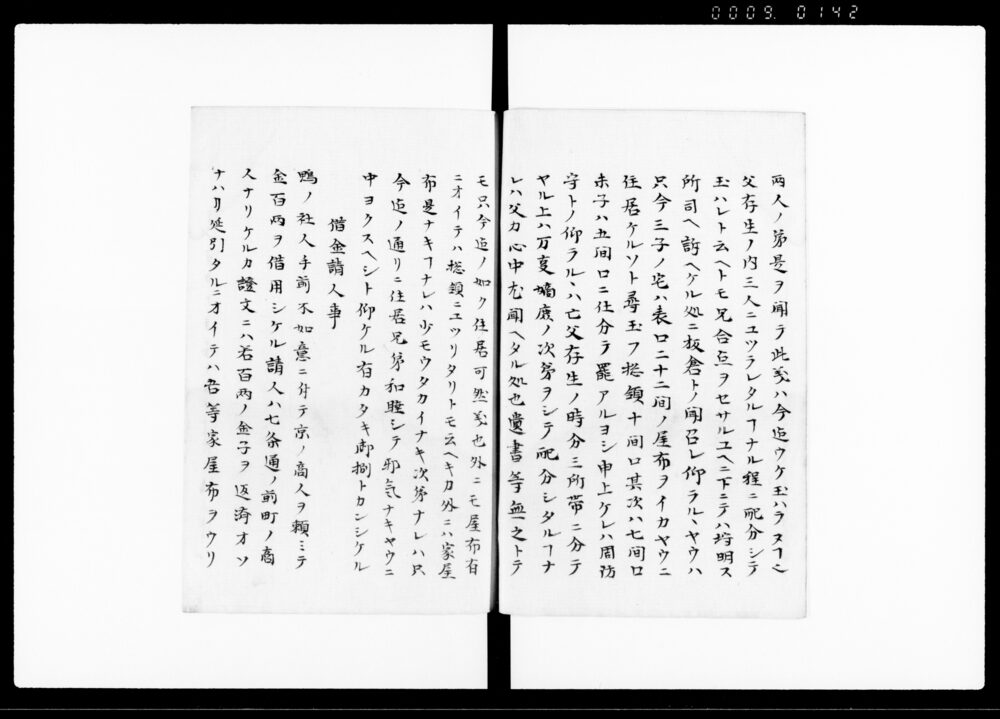 0009. 0142
両人ノ弟是ヲ聞テ此義ハ今迄ウケ玉ハラヌヿ也
父存生ノ内三人ニユツラレタルヿナル程ニ配分シテ
玉ハレト云ヘトモ兄合点ヲセサルユヘニ下ニテハ埒明ス
所司ヘ訴ヘケル処ニ板倉トノ聞召レ仰ラルヽヤウハ
只今三子ノ宅ハ表口二十二間ノ屋布ヲイカヤウニ
住居ケルソト尋玉フ惣領十間口其次ハ七間口
末子ハ五間口ニ仕分テ罷アルヨシ申上ケレハ周防
守トノ仰ラルヽハ亡父存生ノ時分三所帯ニ分テ
ヤル上ハ万事嫡庶ノ次第ヲシテ配分シタルヿナ
レハ父カ心中尤聞ヘタル処也遺書等無之トテ
モ只今迄ノ如ク住居可然義也外ニモ屋布有
ニオイテハ惣領ニユツリタリトモ云ヘキカ外ニハ家屋
布是ナキヿナレハ少モウタカイナキ次第ナレハ只
今迄ノ通リニ住居兄弟和睦シテ邪気ナキヤウニ
中ヨクスヘシト仰ケル有カタキ御捌トカンシケル
借金請人事
鴨ノ社人手前不如意ニ付テ京ノ商人ヲ頼ミテ
金百両ヲ借用シケル請人ハ七条通ノ前町ノ商
人ナリケルカ證文ニハ若百両ノ金子ヲ返済オソ
ナハリ延引タルニオイテハ吾等家屋布ヲウリ